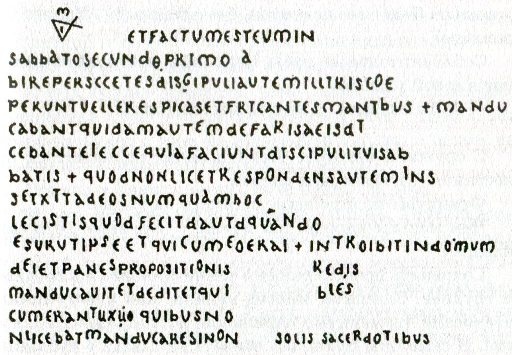 ETFACTUMESTEUMIN
SABBATOSECUNDOPRIMO A
BIREPERSCCETESDISGIPULIAUTEMILLTRISCOE
PERUNTUELLERESPICASETFRTCANTESMANTBUS + MANDU
CABANTQUIDAMAUTEMDEFARISAEISDT
CEBANTELECCEQUIAFACIUNTDTSCIPULITUISAB
BATIS + QUODNONLICETRESPONDENSAUTEMINS
SETXTTADEOSNUMQUAMHOC
LECISTISQUODFECITDAUTDQUANDO
ESURUTIPSEETQUICUMEOERAI + INTROIBITINDOMUM
DEIETPANESPROPOSITIONIS REDIS
MANDUCAUITETDEDITETQUI BLES
CUMERANTUXUO QUIBUSNO
NLICEBATMANDUCARESINON SOLIS SACERDOTIBUS